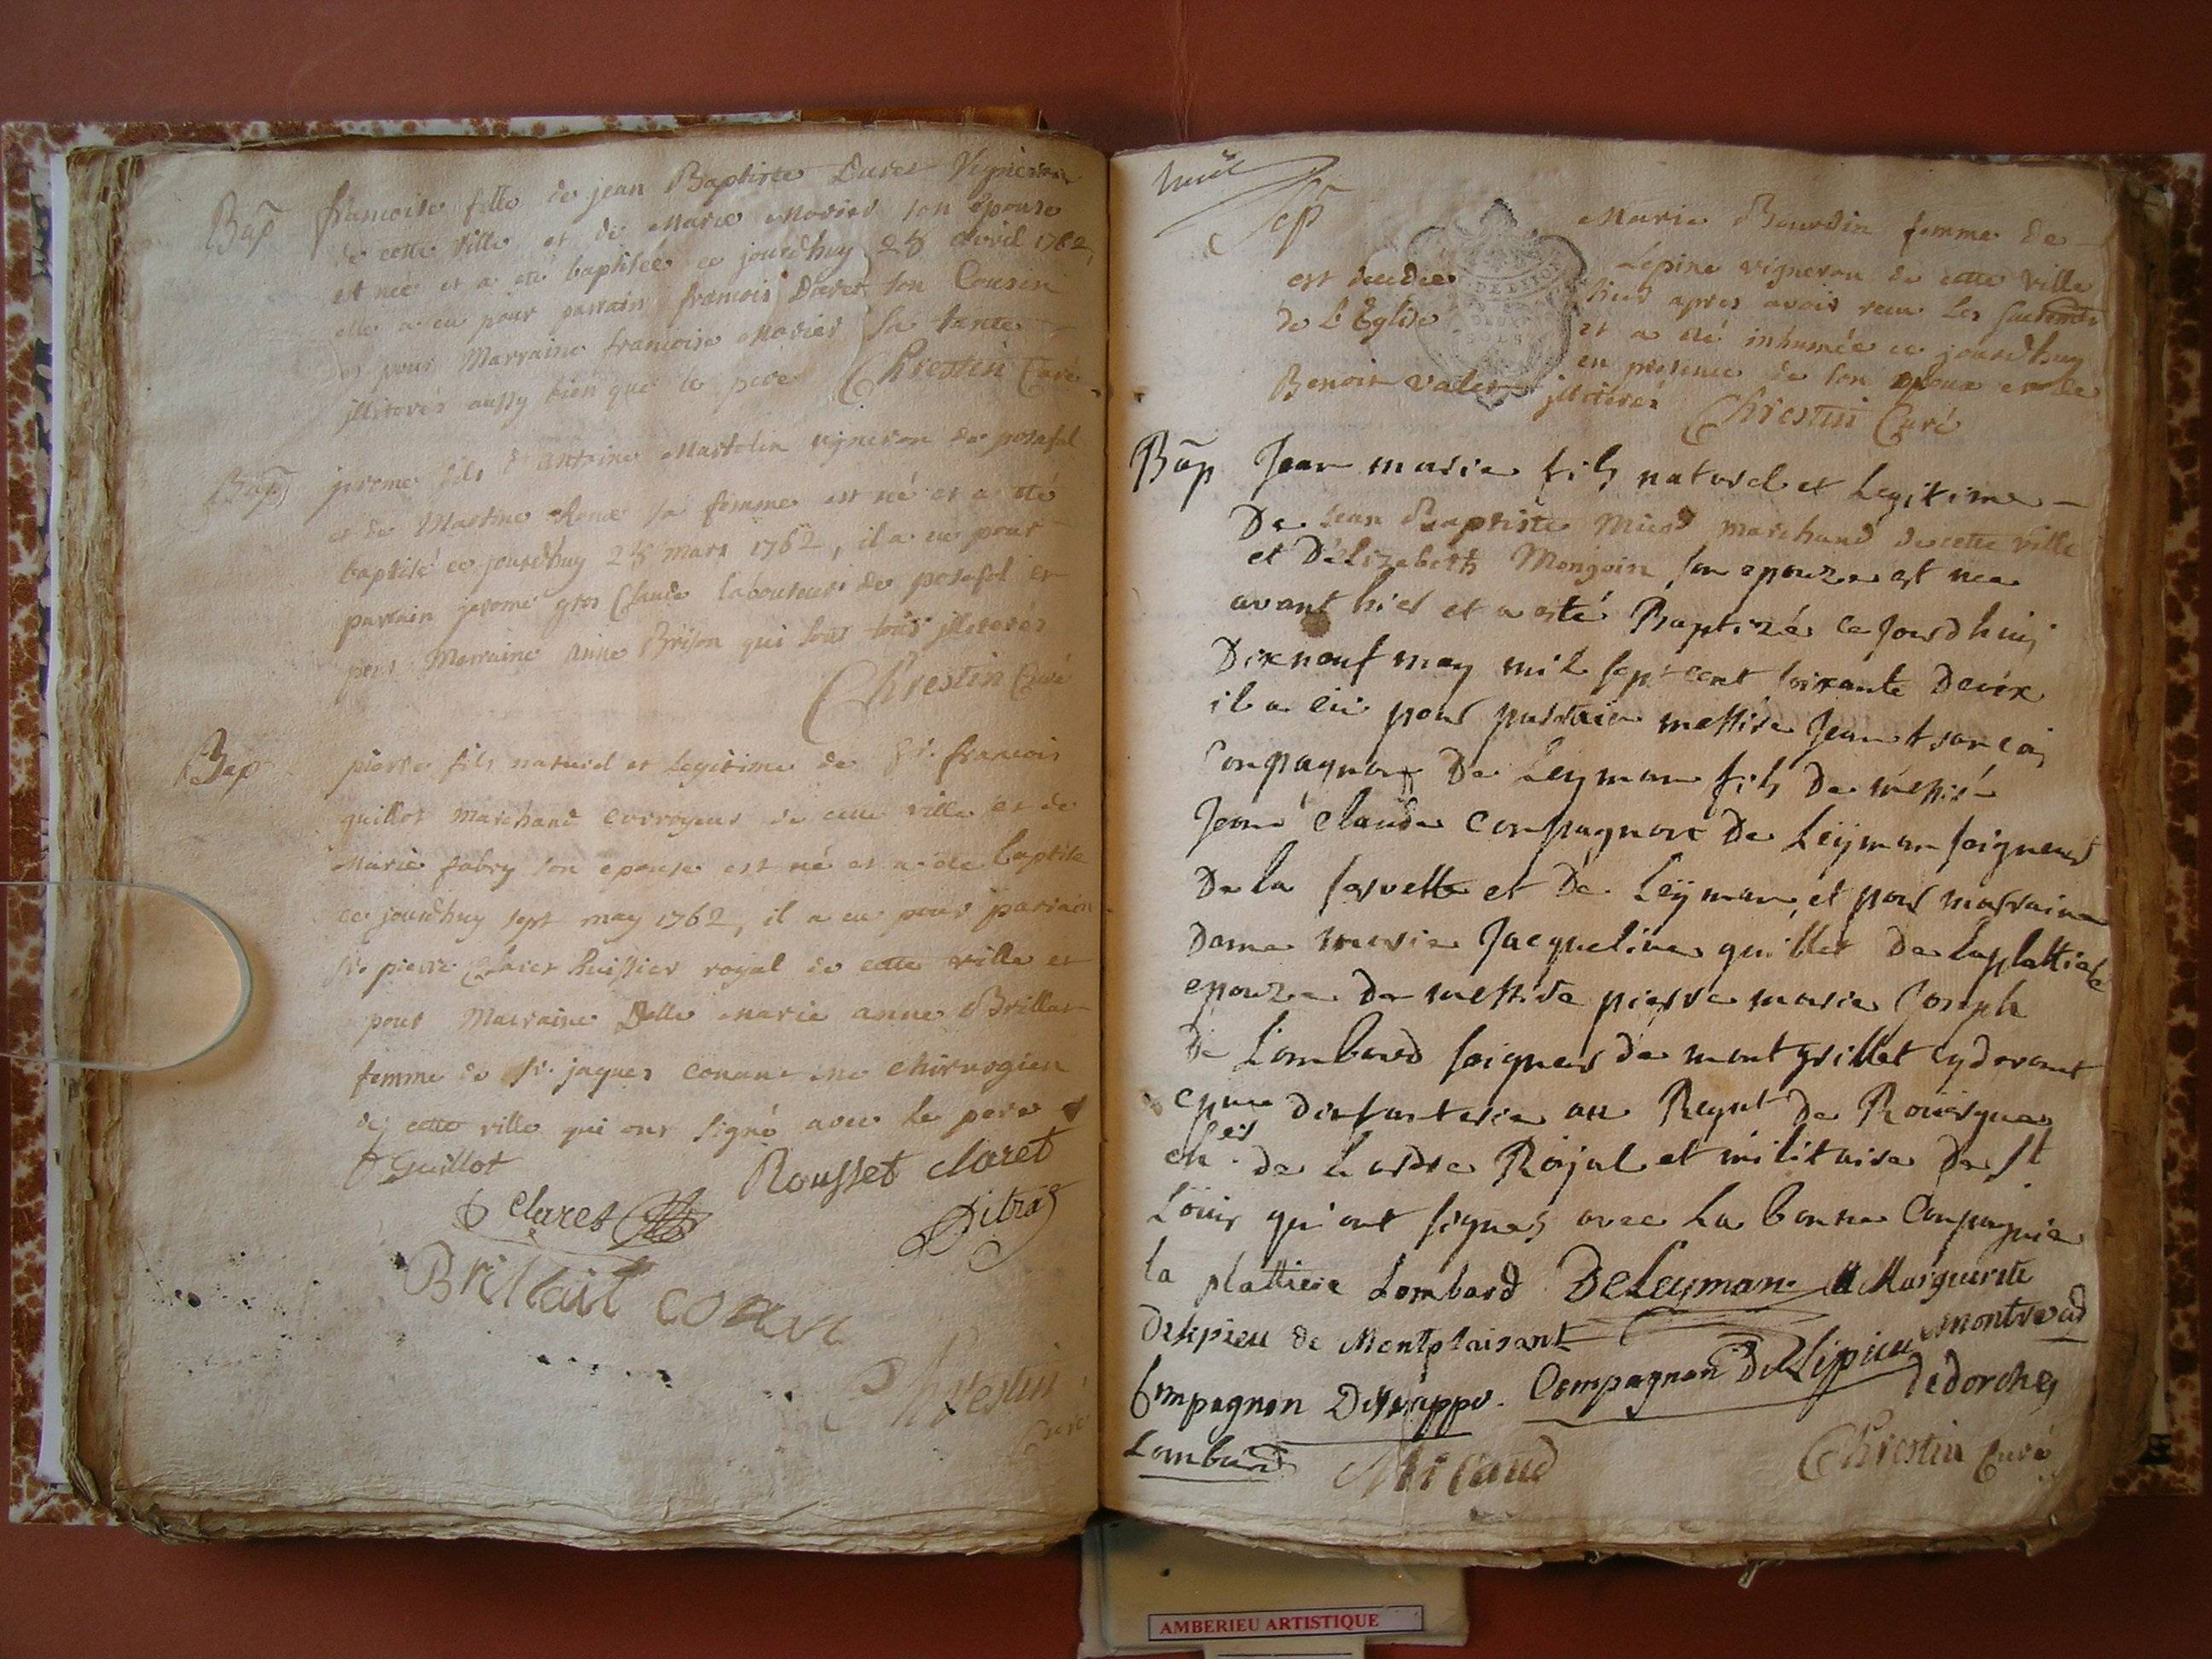 Bap
francoise fille de jean Baptiste Duret Vigneron
de cette ville et de Marie Morier son epouse
est née et a eté baptisée ce jourdhuy 28 avril 1762,
elle a eu pour parrain francois Duret son Cousin
et pour Marraine francoise Morier sa tante
jlliterés aussy bien que le pere Chrestin Curé
Bap
jerome fils d'antoine Martelin vigneron de posafol
et de Martine Roux sa femme est né et a eté
baptisé ce jourdhuy 28 mars 1762, il a eu pour
parrain jerome gros Claude laboureur de posafol et
pour Marraine Anne Brison qui sont tous jlliterés
Chrestin Curé
Bap
pierre fils naturel et legitime de Sr. francois
guillot marchand corroyeur de cette ville et de
Marie fabry son epouse est né et a ete baptise
ce jourdhuy sept may 1762, il a eu pour parrain
Sr. pierre Claret huissier royal de cette ville et
pour Marraine Delle Marie anne Brillat
femme de Sr. jaques conand me chirurgien
de cette ville qui ont signé avec le pere
Guillot
Rousset claret
Claret
Ditra
Brillait conan
Chrestin
Curé
huit
Sep
Marie Bourdin femme de
Lépine vigneron de cette ville
est decedée hier apres avoir recu les sacremts
de L'Eglise et a eté inhumée ce jourdhuy
en presence de son epoux et de
Benoit valet jlliterés Chrestin Curé
Bap
Jean marie fils naturel et legitime
De jean Baptiste Micod marchand de cette ville
et D'elizabeth Mongoin son epouze est nee
avant hier et a esté Baptizée ce jourdhuij
Dixneuf may mil sept cent soixante Deux
il a eu pour parrain messire Jean francois
Compagnon De Leyman fils De messire
Jean claude compagnon De Leÿman seigneur
De la servette et De Leÿman, et pour marraine
Dame marie Jacqueline guillet De laplattiere
epouze De messire pierre marie Joseph
De Lombard seigneur De montgrillet cydevant
cpne dinfanterie au Regnt De Roüergue
cher de L'ordre Roijal et militaire De St
Loüis qui ont signes avec La bonne Compagnie
la plattiere Lombard DeLeyman Marguerite
Delipieu de Montplaisant montread
Compagnon Compagnon De Lipieu dedorches
Lombard Micaud Chrestin Curé
AMBERIEU ARTISTIQUE